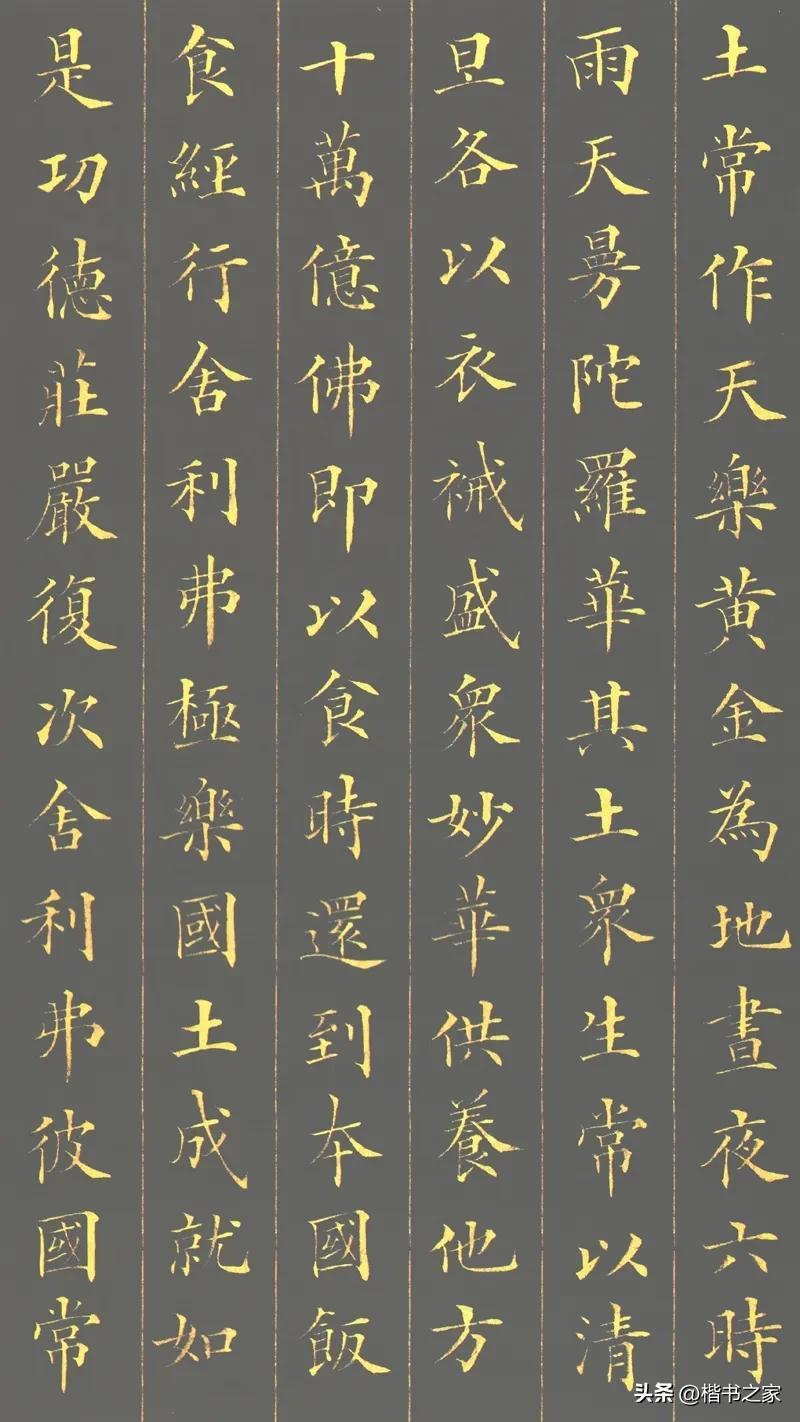 土常作天樂黃金為地晝夜六時
雨天曼陀羅華其土眾生常以清
旦各以衣祴盛眾妙華供養他方
十萬億佛即以食時還到本國飯
食經行舍利弗極樂國土成就如
是功德莊嚴復次舍利弗彼國常
头条 @楷书之家